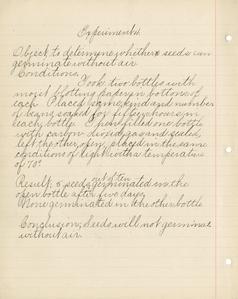 Experiment 4.
Object, to determine, whether seeds can
germinate without air
Conditions,
Took two bottles with
moist blotting paper in bottom of
each. Placed same kind and number
of beans soaked for fifty hours, in
each bottle. Then filled one bottle
with carbon dioxid gas and sealed,
left the other open, placed in the same
conditions of light with a temperature
of 70°
out of ten
Result; 8 seeds germinated in the
open bottle after five days.
None germinated in the other bottle
Conclusion; Seeds will not germinate
without air.